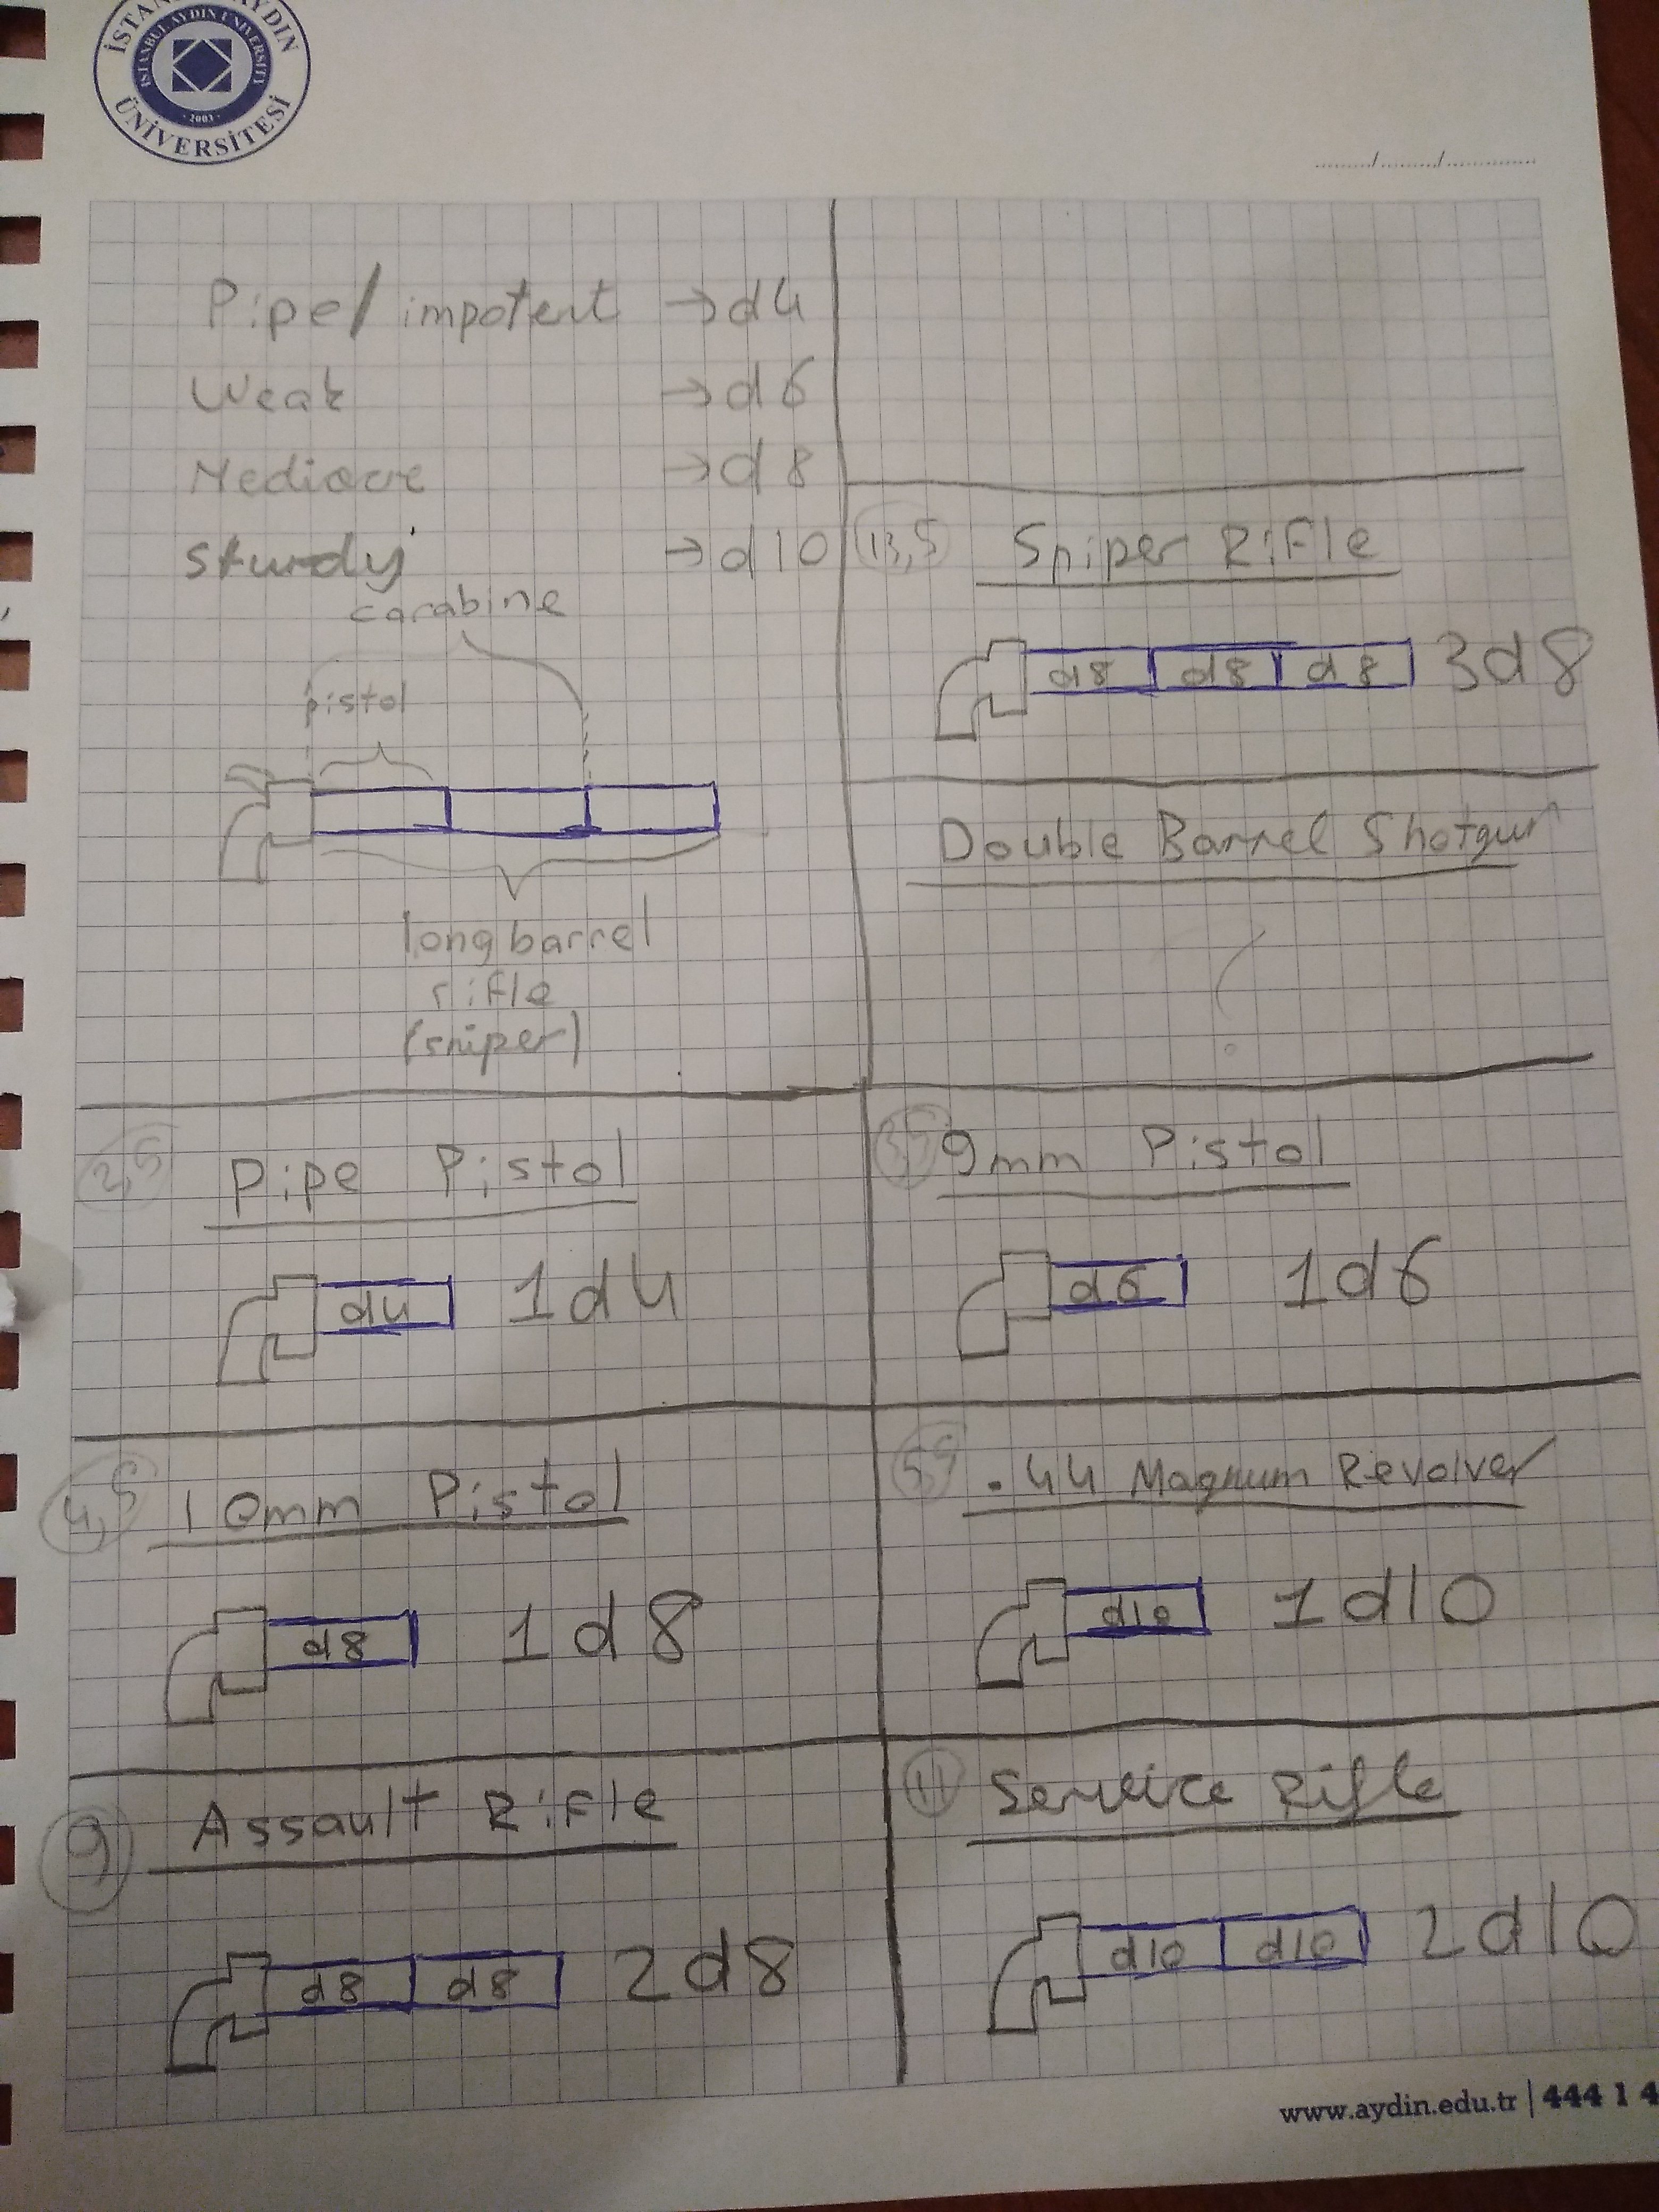 İSTANBUL AYDIN ÜNİVERSİTESİ
İSTANBUL AYDIN ÜNİVERSİTESİ
· 2003 ·
......../......../..............
Pipe/impotent → d4
Weak → d6
Mediocre → d8
Sturdy → d10
carabine
pistol
long barrel
rifle
(sniper)
13,5 Sniper Rifle
d8 d8 d8 3d8
Double Barrel Shotgun
?
2,5 Pipe Pistol
d4 1d4
3,5 9mm Pistol
d6 1d6
4,5 10mm Pistol
d8 1d8
5,5 .44 Magnum Revolver
d10 1d10
9 Assault Rifle
d8 d8 2d8
11 Service Rifle
d10 d10 2d10
www.aydin.edu.tr | 444 1 4